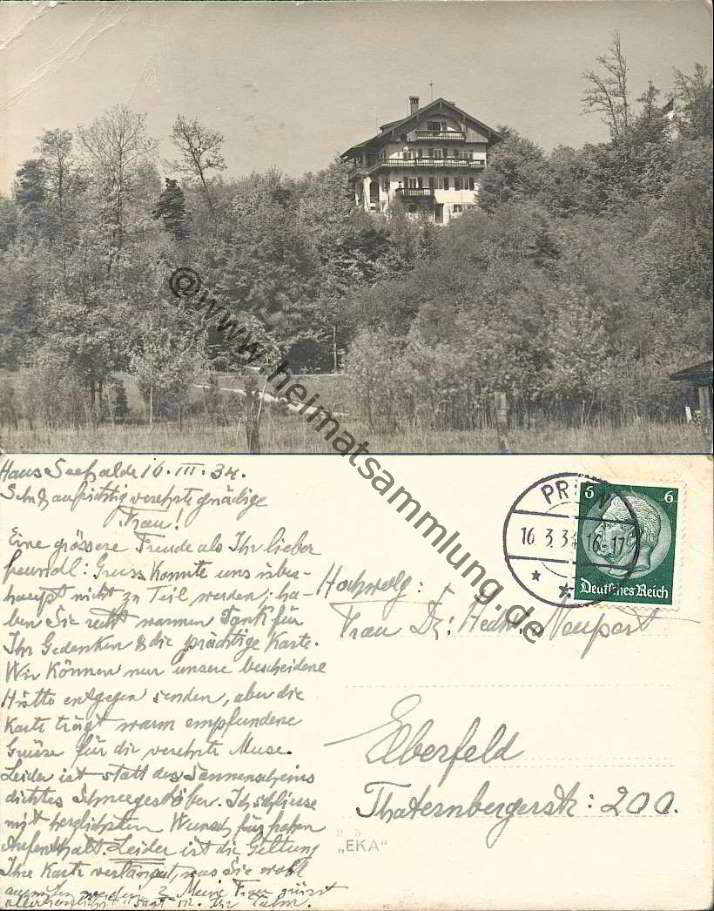 @www.heimatsammlung.de
Haus Seehalde 16. III. 34.
Sehr aufrichtig verehrte gnädige
Frau!
Eine grössere Freude als Ihr lieber
freundl: Gruss konnte uns über-
haupt nicht zu Teil werden; ha-
ben Sie recht warmen Dank für
Ihr Gedenken & die prächtige Karte.
Wir können nur unsere bescheidene
Hütte entgegen senden, aber die
Karte trägt warm empfundene
Grüsse für die verehrte Muse.
Leider ist statt des Sonnenscheins
dichtes Schneegestöber. Ich schliesse
mit herzlichsten Wunsch für frohen
Aufenthalt. Leider ist die Geltung
Ihre Karte verlängert, was Sie wohl
Meine Frau grüsst
PRIEN
16.3.34 16-17
6 6
Deutsches Reich
Hochwolg:
Frau Dr: Hedw. Neupert
Elberfeld
Thaternbergerstr: 200.
„EKA“